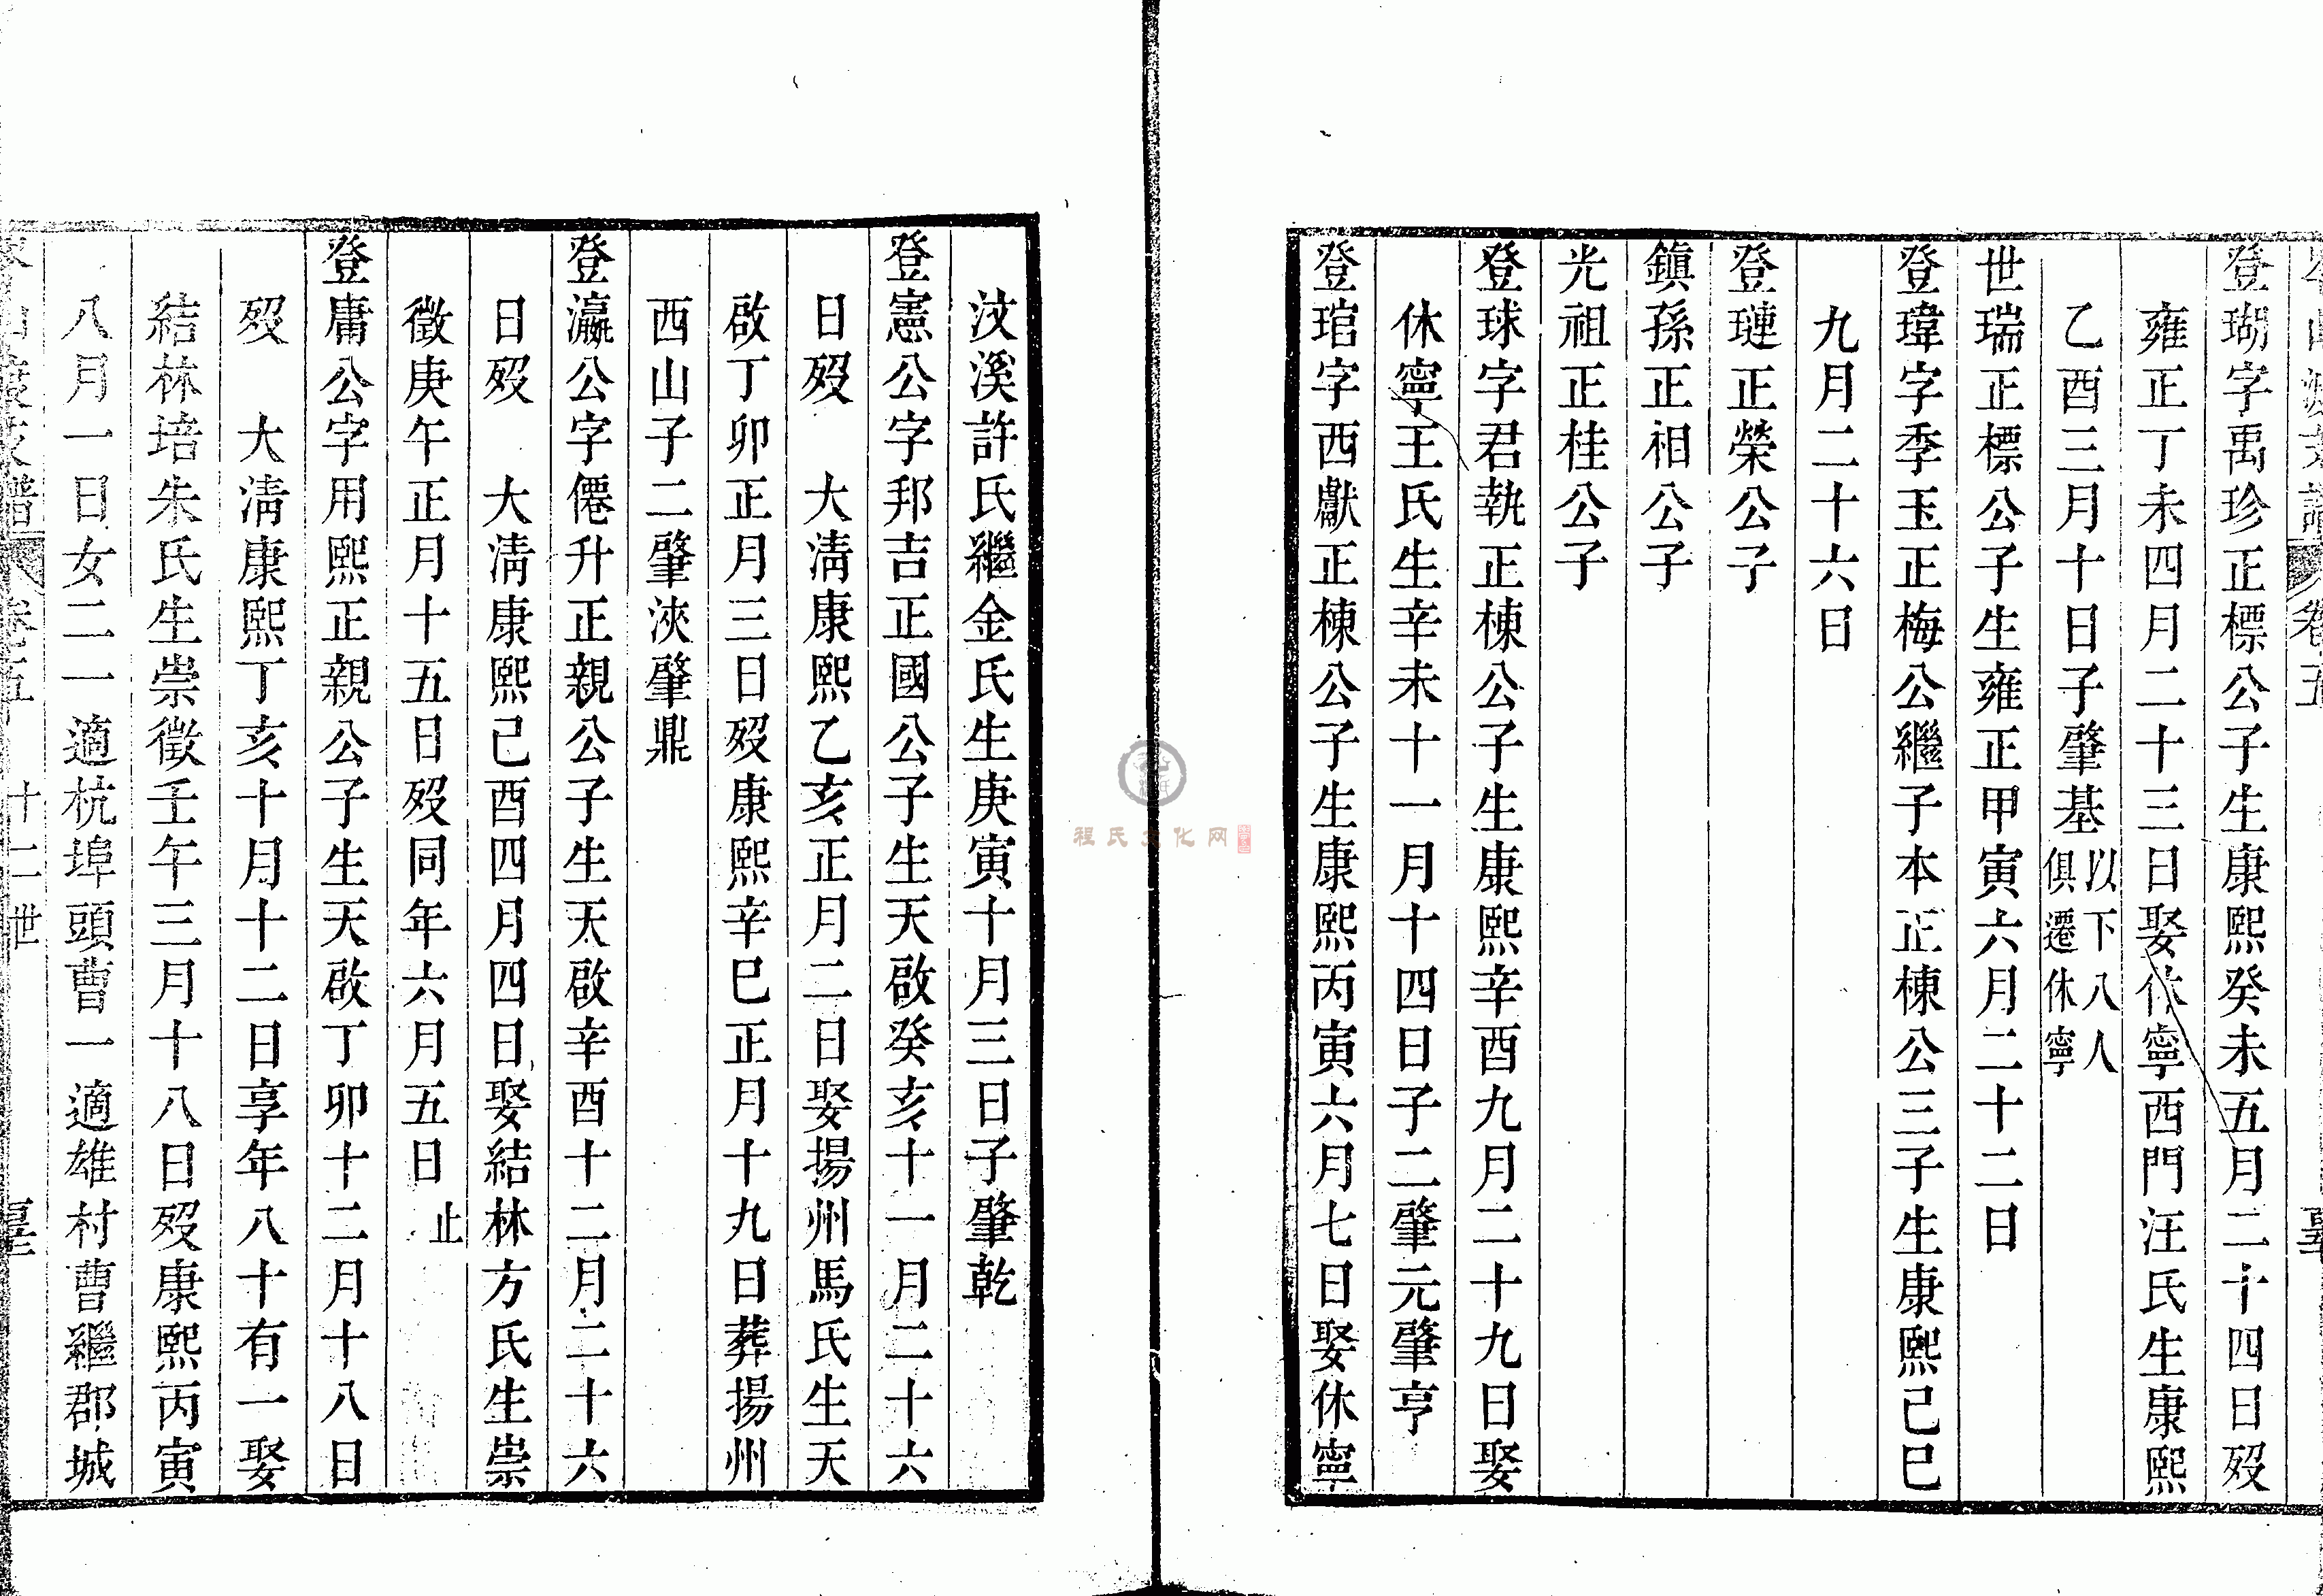 登瑚字禹珍正標公子生康熙癸未五月二十四日歿
雍正丁未四月二十三日娶休寧西門汪氏生康熙
乙酉三月十日子肇基以下八人
俱遷休寧
世瑞正標公子生雍正甲寅六月二十二日
登瑋字季玉正梅公繼子本正棟公三子生康熙己巳
九月二十六日
登璉正榮公子
鎮孫正相公子
光祖正桂公子
登球字君執正棟公子生康熙辛酉九月二十九日娶
休寧王氏生辛未十一月十四日子二肇元肇亨
登琯字西獻正棟公子生康熙丙寅六月七日娶休寧
汶溪許氏繼金氏生庚寅十月三日子肇乾
登憲公字邦吉正國公子生天啟癸亥十一月二十六
日歿 大清康熙乙亥正月二日娶揚州馬氏生天
啟丁卯正月三日歿康熙辛巳正月十九日葬揚州
西山子二肇浹肇鼎
登瀛公字僊升正親公子生天啟辛酉十二月二十六
日歿 大清康熙己酉四月四日娶結林方氏生崇
徵庚午正月十五日歿同年六月五日 止
登庸公字用熙正親公子生天啟丁卯十二月十八日
歿 大清康熙丁亥十月十二日享年八十有一娶
結林培朱氏生崇徵壬午三月十八日歿康熙丙寅
八月一日女二一適杭埠頭曹一適雄村曹繼郡城
卷五 十二世
程氏文化网